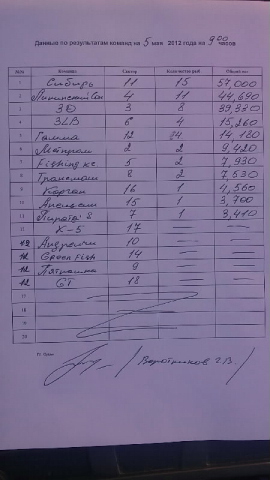 Данные по результатам команд на 5 мая 2012 года на 9⁰⁰ часов
№№ Команда Сектор Количество рыб Общий вес
1 Сибирь 11 15 57,000
2 4 11 44,690
3 ЗД 3 8 39,330
4 ЗLВ 6 4 15,260
5 Гамма 12 24 14,180
6 Метпром 2 2 9,420
7 Fishing кс 5 2 7,930
8 Трансмаш 8 2 7,530
9 Карган 16 1 4,560
10 Апельсин 15 1 3,700
11 Пираты 8 7 1 3,410
12 X-5 17 — —
12 Андрейки 10 — —
12 Green Fish 14 — —
12 Пятнашка 9 — —
12 GT 18 — —
17
18
19
20
Гл. Судья / Воротников Г.В. /